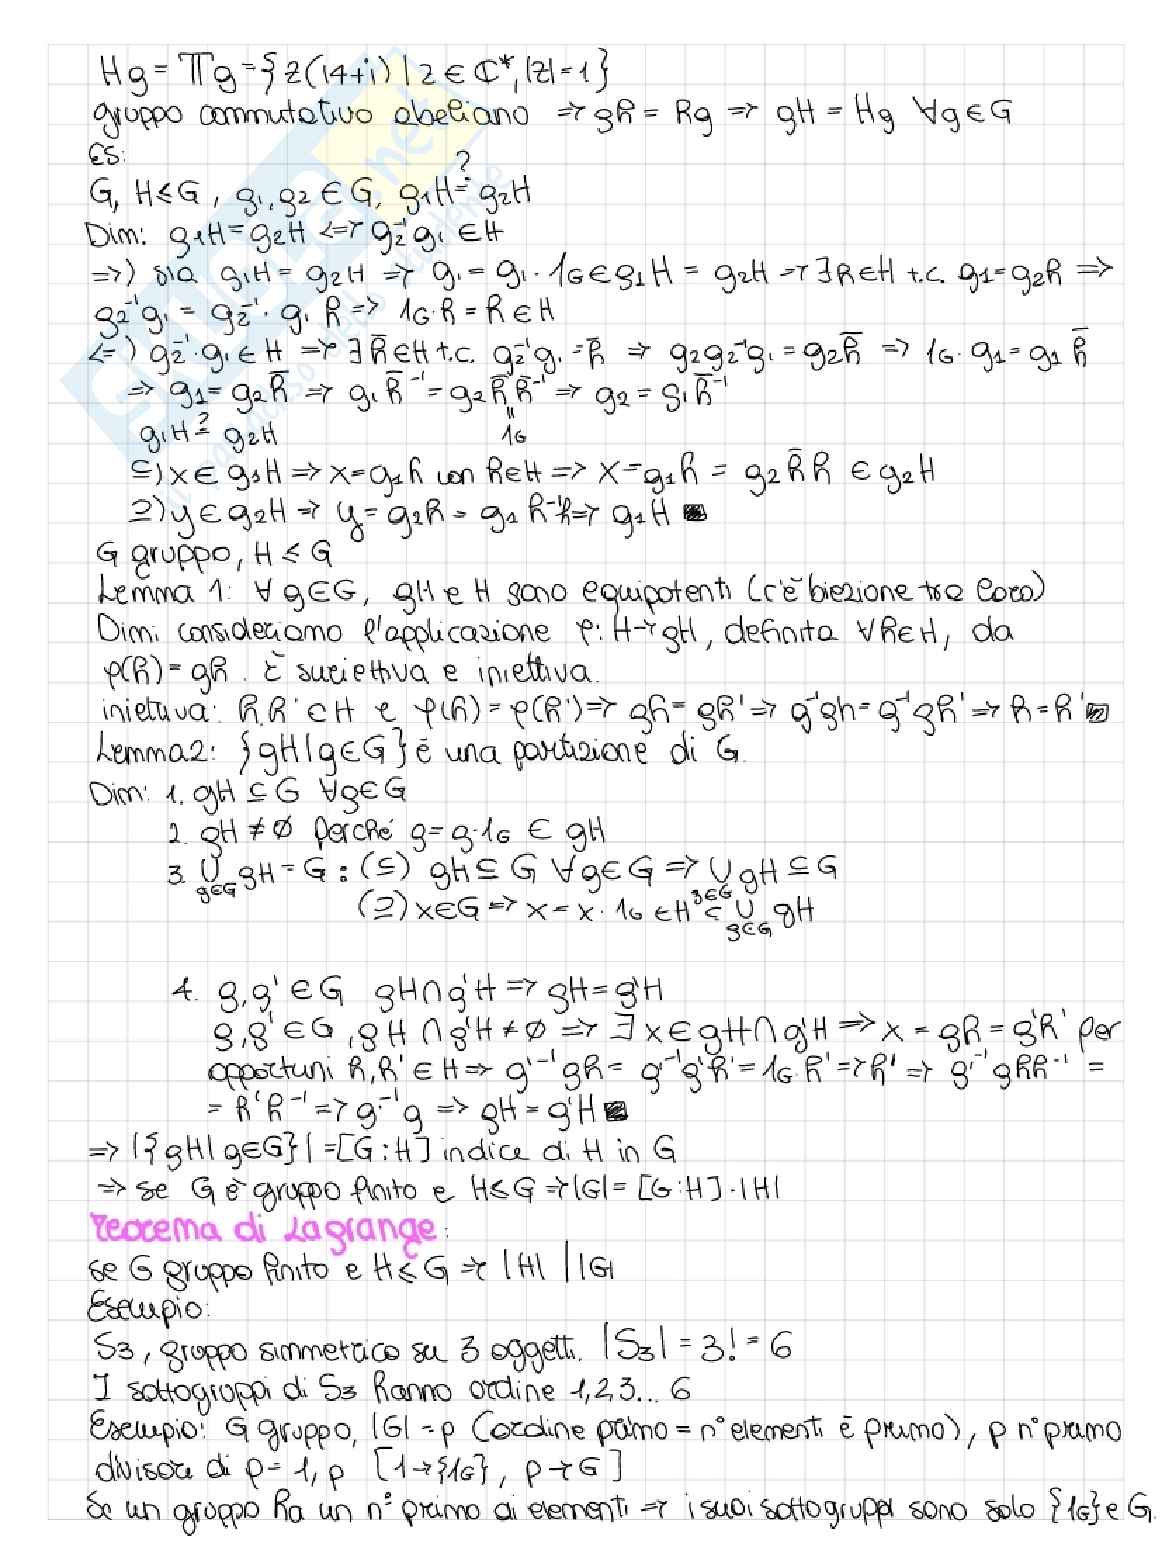 Hg = 𝕋g = {z(14+i) | z ∈ ℂ*, |z| = 1}
gruppo commutativo abeliano => gh = hg => gH = Hg ∀g∈G
ES:
G, H≤G, g1,g2 ∈ G, g1H ?= g2H
Dim: g1H = g2H <=> g2⁻¹g1 ∈ H
=>) sia g1H = g2H => g1 = g1·1G ∈ g1H = g2H => ∃h∈H t.c. g1 = g2h =>
g2⁻¹g1 = g2⁻¹·g1 h => 1G·h = h ∈ H
<=) g2⁻¹·g1 ∈ H => ∃h̄∈H t.c. g2⁻¹g1 = h̄ => g2g2⁻¹g1 = g2h̄ => 1G·g1 = g1 h̄
=> g1 = g2h̄ => g1h̄⁻¹ = g2h̄h̄⁻¹ => g2 = g1h̄⁻¹
g1H ?= g2H   "1G
⊆) x ∈ g1H => x = g1h con h∈H => x = g1h = g2h̄h ∈ g2H
⊇) y ∈ g2H => y = g2h = g1h̄⁻¹h => g1H
G gruppo, H ≤ G
Lemma 1: ∀g∈G, gH e H sono equipotenti (c'è biezione tra loro)
Dim: consideriamo l'applicazione φ: H→gH, definita ∀h∈H, da
φ(h) = gh. È suriettiva e iniettiva.
iniettiva: h,h' ⊂ H e φ(h) = φ(h') => gh = gh' => g⁻¹gh = g⁻¹gh' => h = h'
Lemma 2: {gH | g∈G} è una partizione di G.
Dim: 1. gH ⊆ G ∀g∈G
2. gH ≠ ∅ perché g = g·1G ∈ gH
3. ∪g∈G gH = G : (⊆) gH ⊆ G ∀g∈G => ∪g∈G gH ⊆ G
(⊇) x∈G => x = x·1G ∈ H ⊆ ∪g∈G gH
4. g,g' ∈ G gH∩g'H => gH = g'H
g,g' ∈ G, gH ∩ g'H ≠ ∅ => ∃x ∈ gH∩g'H => x = gh = g'h' per
opportuni h,h' ∈ H => g'⁻¹gh = g'⁻¹g'h' = 1G·h' => h' => g'⁻¹ghh⁻¹ =
= h'h⁻¹ => g'⁻¹g => gH = g'H
=> |{gH | g∈G}| = [G:H] indice di H in G
=> se G è gruppo finito e H≤G => |G| = [G:H]·|H|
Teorema di Lagrange:
se G gruppo finito e H≤G => |H| | |G|
Esempio:
S3, gruppo simmetrico su 3 oggetti. |S3| = 3! = 6
I sottogruppi di S3 hanno ordine 1,2,3... 6
Esempio: G gruppo, |G| = p (ordine primo = n° elementi è primo), p n° primo
divisori di p = 1, p [1→{1G}, p→G]
Se un gruppo ha un n° primo di elementi => i suoi sottogruppi sono solo {1G} e G.